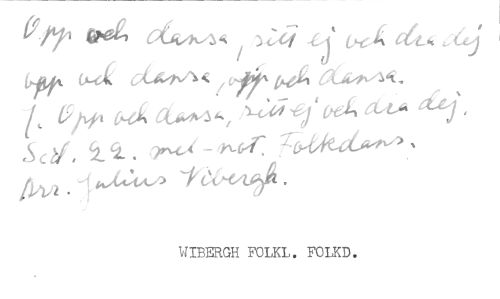 Opp och dansa, sitt ej och dra dej
upp och dansa, upp och dansa.
1. Opp och dansa, sitt ej och dra dej.
Sid. 22. mel-not. Folkdans.
Arr. Julius Vibergh.
WIBERGH FOLKL. FOLKD.